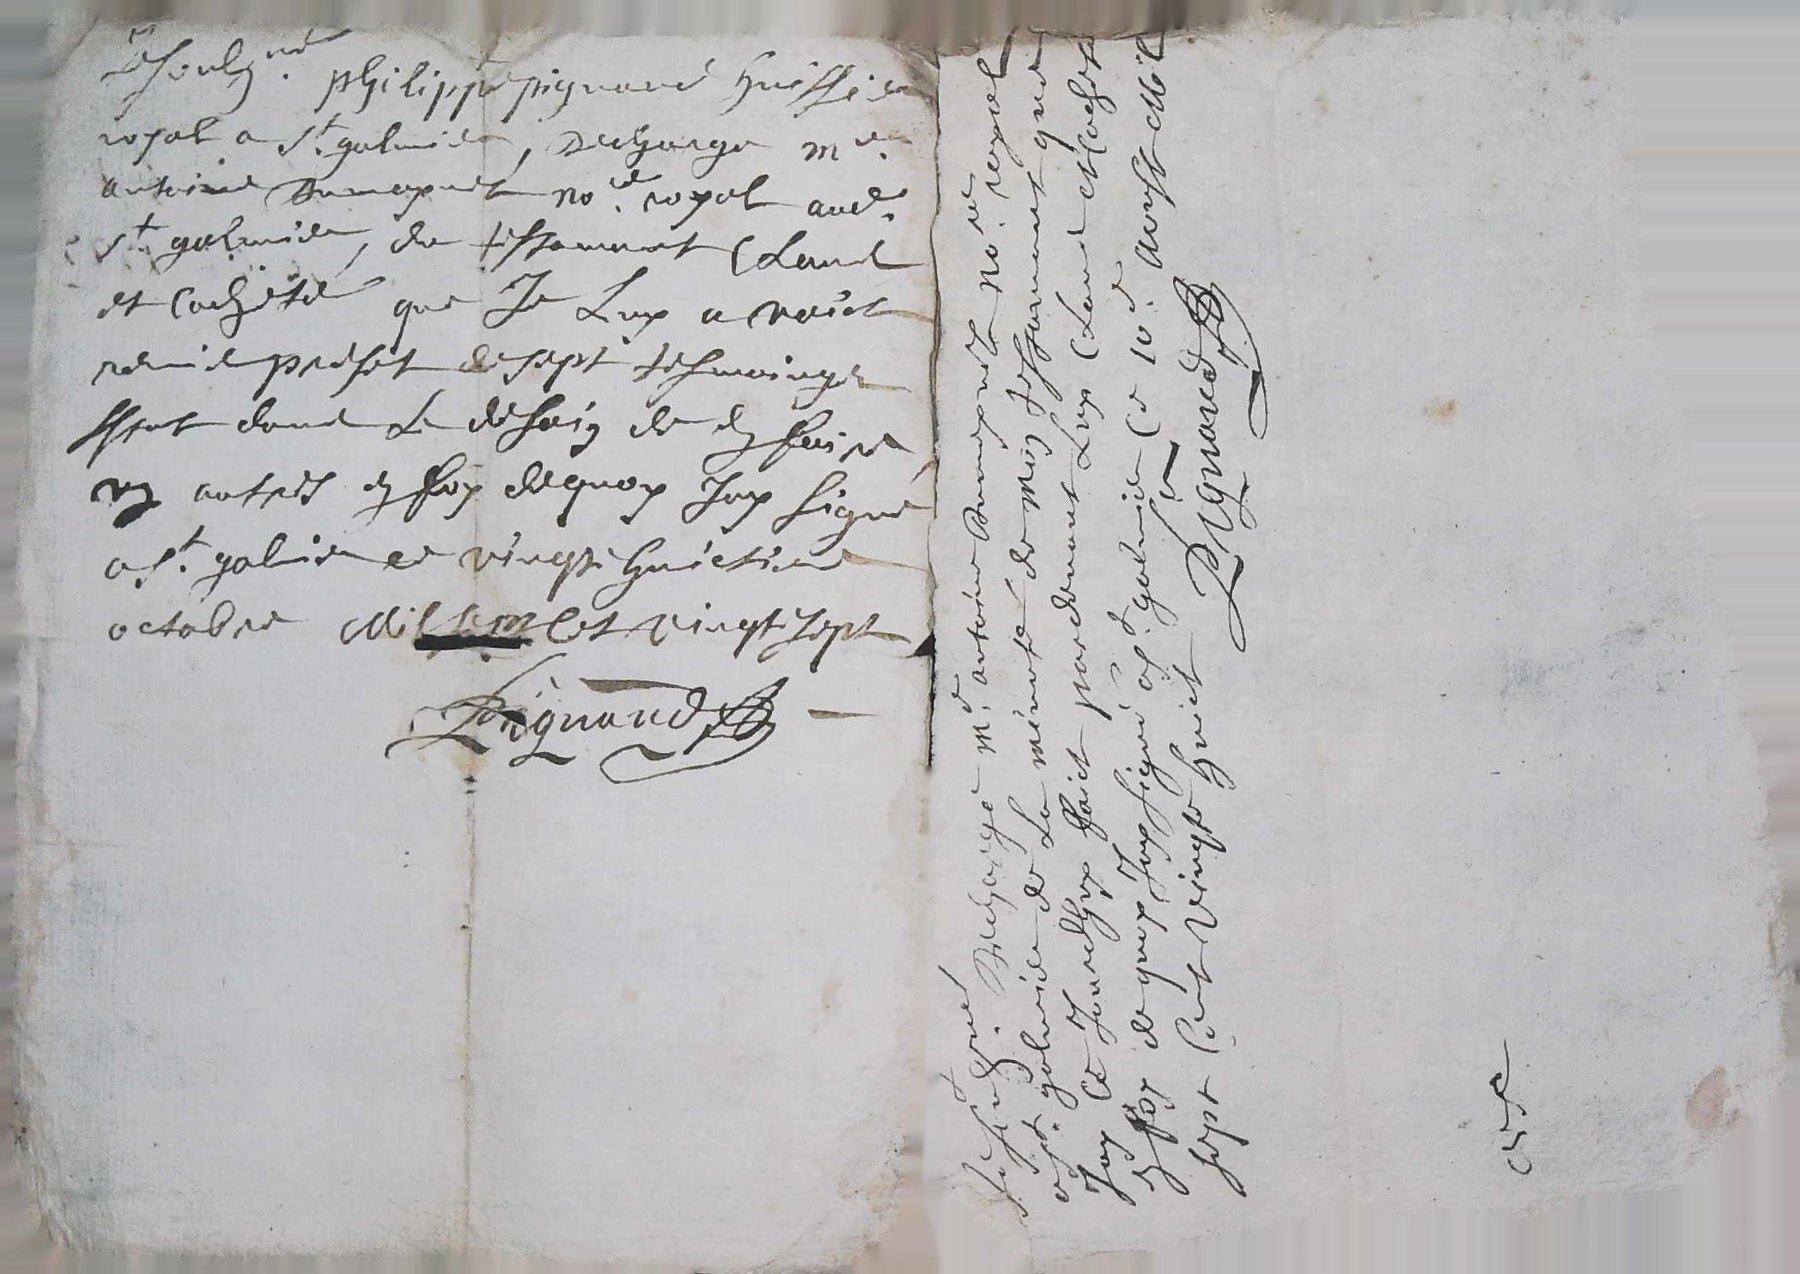 Je soubz.né philippe pignand huissier
royal a st. galmier, descharge me.
antoine Dumaynet no.re royal aud.
st. galmier, du testament Claud
et cacheté que Je Luy a voict
remis presét de sept tesmoingz
Estant dans Le desaig de en faire
un autres en foy de quoy Jay signé
a st. galmier ce vingt huictieme
octobre Mil sept Cet vingt sept
Pignand
Je soubz.gné descharge me. antoine Dumaynet no.re royal
a st. galmier de La minute de mon testamant que
Jay Ce Jourdhuy faict pardevant Luy Claud et Cacheté
en foy de quoy Jay signé a st. galmier Ce 10.e aoust Mil
sept Cent vingt huict
Pignand